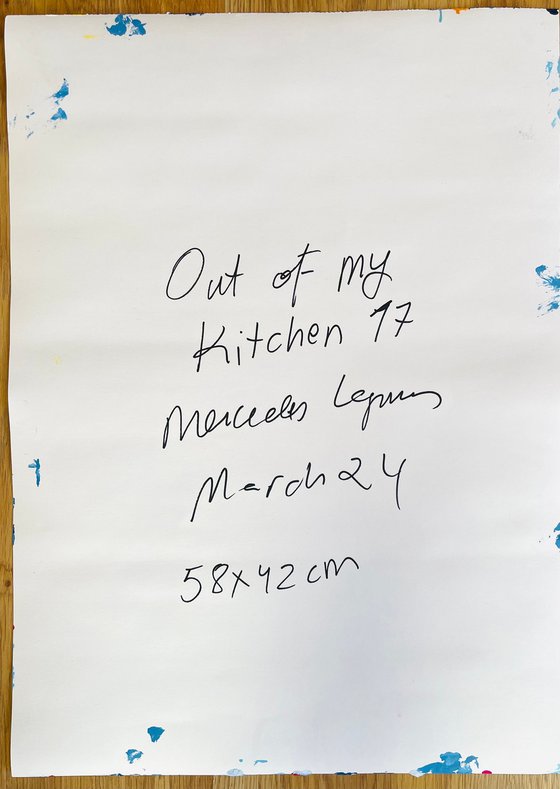 Out of my
Kitchen 17
Mercedes
March 24
58x42cm